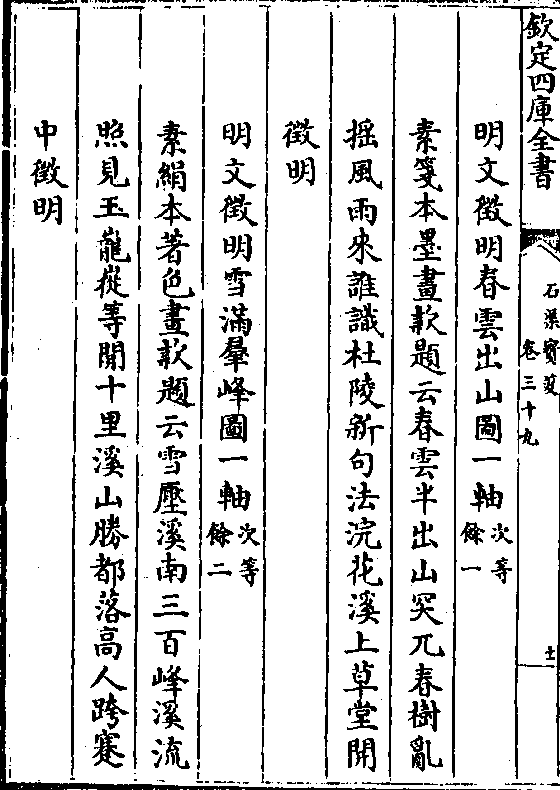 欽定四庫全書
石渠寶笈
卷三十九
十一
明文徵明春雲出山圖一軸次等
餘一
素箋本墨畫款題云春雲半出山突兀春樹亂
揺風雨來誰識杜陵新句法浣花溪上草堂開
徵明
明文徵明雪滿羣峰圖一軸次等
餘二
素絹本著色畫款題云雪壓溪南三百峰溪流
照見玉巃嵸等閒十里溪山勝都落高人跨蹇
中徵明